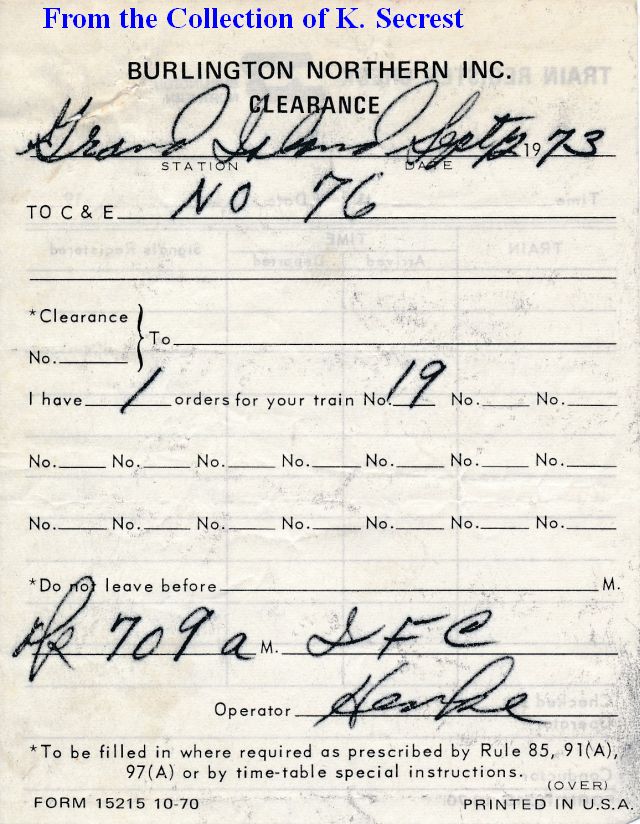 From the Collection of K. Secrest
BURLINGTON NORTHERN INC.
CLEARANCE
Grand Island Sept 1973
STATION DATE
TO C & E No 76
*Clearance
No. To
I have 1 orders for your train No. 19 No. No.
No. No. No. No. No. No. No.
No. No. No. No. No. No. No.
*Do not leave before M.
709 a M. FC
Operator
*To be filled in where required as prescribed by Rule 85, 91(A),
97(A) or by time-table special instructions.
(OVER)
FORM 15215 10-70 PRINTED IN U.S.A.